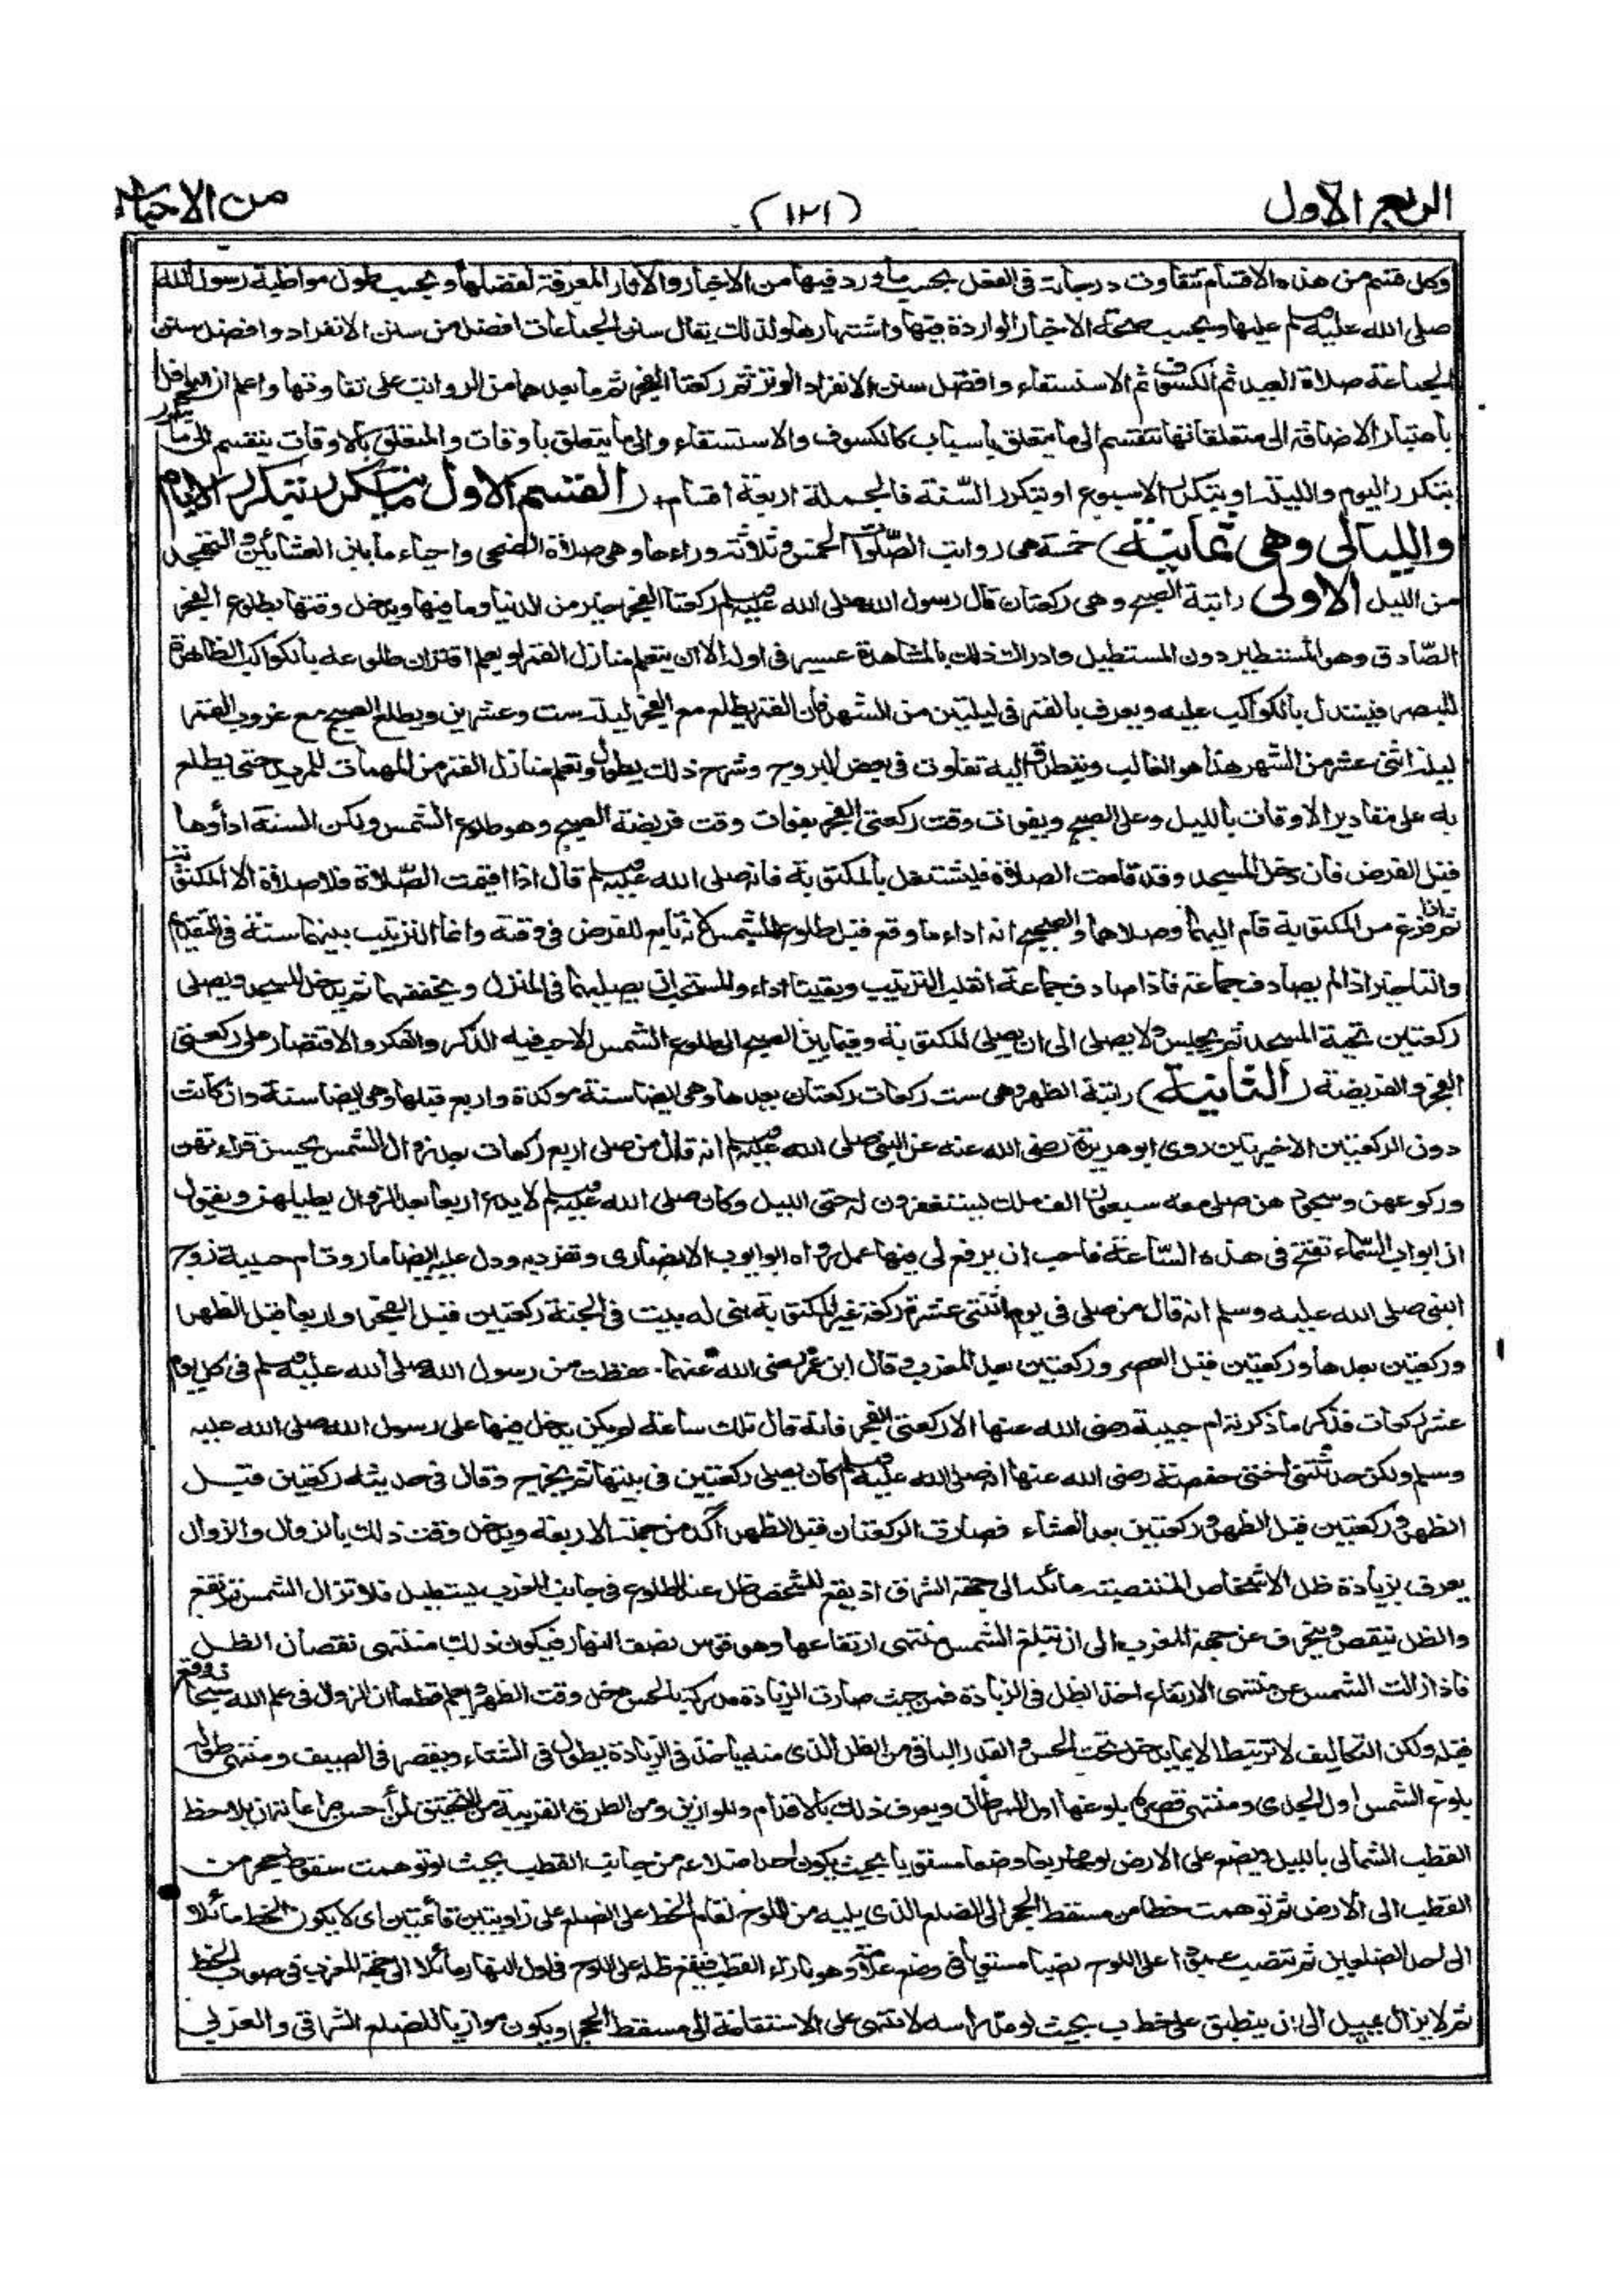 الربع الاول
(١٢١)
من الاحياء
وكل قسم من هذه الاقسام تتفاوت درجاته فى الفضل بحسب ما ورد فيها من الاخبار والآثار المعرفة لفضلها وبحسب طول مواظبة رسول الله
صلى الله عليه وسلم عليها وبحسب صحة الاخبار الواردة فيها واشتهارها ولذلك يقال سنن الجماعات افضل من سنن الانفراد وافضل سنن
الجماعة صلاة العيد ثم الكسوف ثم الاستسقاء وافضل سنن الانفراد الوتر ثم ركعتا الفجر ثم ما بعدهما من الرواتب على تفاوتها واعلم ان النوافل
باعتبار الاضافة الى متعلقاتها تنقسم الى ما يتعلق باسباب كالكسوف والاستسقاء والى ما يتعلق باوقات والمتعلق بالاوقات ينقسم الى ما
يتكرر اليوم والليلة او بتكرر الاسبوع او بتكرر السنة فالجملة اربعة اقسام (القسم الاول ما يتكرر بتكرر الايام
والليالى وهى ثمانية) خمسة هى رواتب الصلوات الخمس وثلاثة وراءها وهى صلاة الضحى واحياء ما بين العشائين والتهجد
من الليل الاولى راتبة الصبح وهى ركعتان قال رسول الله صلى الله عليه وسلم ركعتا الفجر خير من الدنيا وما فيها ويدخل وقتها بطلوع الفجر
الصادق وهو المستطير دون المستطيل وادراك ذلك بالمشاهدة عسير فى اوله الا ان يتعلم منازل القمر او يعلم اقتران طلوعه بالكواكب الظاهرة
للبصر فيستدل بالكواكب عليه ويعرف بالقمر فى ليلتين من الشهر فان القمر يطلع مع الفجر ليلة ست وعشرين ويطلع الصبح مع غروب القمر
ليلة اثنى عشر من الشهر هذا هو الغالب ويتطرق اليه تفاوت فى بعض البروج وشرح ذلك يطول وتعلم منازل القمر من المهمات للمريد حتى يطلع
به على مقادير الاوقات بالليل وعلى الصبح ويفوت وقت ركعتى الفجر بفوات وقت فريضة الصبح وهو طلوع الشمس ولكن السنة اداؤهما
قبل الفرض فان دخل المسجد وقد قامت الصلاة فليشتغل بالمكتوبة فانه صلى الله عليه وسلم قال اذا اقيمت الصلاة فلا صلاة الا المكتوبة
ثم اذا فرغ من المكتوبة قام اليهما وصلاهما والصحيح انه اداء ما وقع قبل طلوع الشمس لانه تابع للفرض فى وقته وانما الترتيب بينهما سنة فى التقديم
والتاخير اذا لم يصادف جماعة فاذا صادف جماعة انقلب الترتيب وبقيتا اداء والمستحب ان يصليهما فى المنزل ويخففهما ثم يدخل المسجد ويصلى
ركعتين تحية المسجد ثم يجلس ولا يصلى الى ان يصلى المكتوبة وفيما بين الصبح الى طلوع الشمس الاحب فيه الذكر والفكر والاقتصار على ركعتى
الفجر والفريضة (الثانية) راتبة الظهر وهى ست ركعات ركعتان بعدها وهى ايضا سنة موكدة واربع قبلها وهى ايضا سنة وان كانت
دون الركعتين الاخيرتين روى ابو هريرة رضى الله عنه عن النبى صلى الله عليه وسلم انه قال من صلى اربع ركعات بعد زوال الشمس يحسن قراءتهن
وركوعهن وسجودهن صلى معه سبعون الف ملك يستغفرون له حتى الليل وكان صلى الله عليه وسلم لا يدع اربعا بعد الزوال يطيلهن ويقول
ان ابواب السماء تفتح فى هذه الساعة فاحب ان يرفع لى فيها عمل رواه ابو ايوب الانصارى وتفرد به ودل عليه ايضا ما روت ام حبيبة زوج
النبى صلى الله عليه وسلم انه قال من صلى فى يوم اثنتى عشرة ركعة غير المكتوبة بنى له بيت فى الجنة ركعتين قبل الفجر واربعا قبل الظهر
وركعتين بعدها وركعتين قبل العصر وركعتين بعد المغرب وقال ابن عمر رضى الله عنهما حفظت من رسول الله صلى الله عليه وسلم فى كل يوم
عشر ركعات فذكر ما ذكرته ام حبيبة رضى الله عنها الا ركعتى الفجر فانه قال تلك ساعة لم يكن يدخل فيها على رسول الله صلى الله عليه
وسلم ولكن حدثتنى اختى حفصة رضى الله عنها انه صلى الله عليه وسلم كان يصلى ركعتين فى بيتها ثم يخرج وقال فى حديثه ركعتين قبل
الظهر وركعتين قبل الظهر وركعتين بعد العشاء فصارت الركعتان قبل الظهر آكد من جملة الاربعة ويدخل وقت ذلك بالزوال والزوال
يعرف بزيادة ظل الاشخاص المنتصبة مائلة الى جهة الشرق اذ يقع للشخص ظل عند الطلوع فى جانب المغرب يستطيل فلا تزال الشمس ترتفع
والظل ينقص وينحرف عن جهة المغرب الى ان تبلغ الشمس منتهى ارتفاعها وهو قوس نصف النهار فيكون ذلك منتهى نقصان الظل
فاذا زالت الشمس عن منتهى الارتفاع اخذ الظل فى الزيادة فمن حيث صارت الزيادة مدركة بالحس دخل وقت الظهر ويعلم قطعا ان الزوال فى علم الله سبحانه وقع
قبله ولكن التكاليف لا ترتبط الا بما يدخل تحت الحس والقدر الباقى من الظل الذى منه ياخذ فى الزيادة يطول فى الشتاء ويقصر فى الصيف ومنتهى طوله
بلوغ الشمس اول الجدى ومنتهى قصره بلوغها اول السرطان ويعرف ذلك بالاقدام والموازين ومن الطرق القريبة من التحقيق لمن احسن مراعاته ان يلاحظ
القطب الشمالى بالليل ويضع على الارض لوحا مربعا وضعا مستويا بحيث يكون احد اضلاعه من جانب القطب بحيث لو توهمت سقوط حجر من
القطب الى الارض ثم توهمت خطا من مسقط الحجر الى الضلع الذى يليه من اللوح لقام الخط على الضلع على زاويتين قائمتين اى لا يكون الخط مائلا
الى احد الضلعين ثم تنصب عمودا على اللوح نصبا مستويا فى موضع علامة وهو بازاء القطب فيقع ظله على اللوح فى اول النهار مائلا الى جهة المغرب فى صوب الخط
ثم لا يزال يميل الى ان ينطبق على خط ب بحيث لو مد راسه لانتهى على الاستقامة الى مسقط الحجر ويكون موازيا للضلع الشرقى والغربى